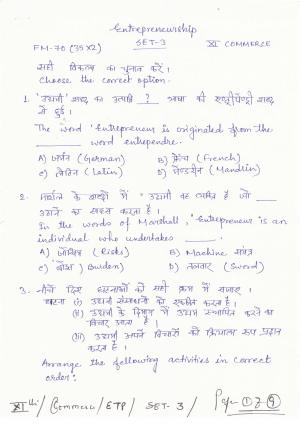 Entrepreneurship
FM-70 (35x2) SET-3 XI COMMERCE
सही विकल्प का चुनाव करें।
Choose the correct option.
1. 'उद्यमी' शब्द का उत्पत्ति ? भाषा की शब्द
से हुई।
The word 'Entrepreneur is originated from the
word entrependre.
A) जर्मन (German) B) फ्रेंच (French)
c) लैटिन (Latin) D) (Mandrin)
2. मार्शल के शब्दों में "उद्यमी वह व्यक्ति है जो
उठाने का साहस करता है।
In the words of Marshall, 'Entrepreneur is an
individual who undertakes
A) जोखिम (Risks) B) Machine संयंत्र
c) बोझ (Burden) D) तलवार (Sword)
3. नीचे दिए घटनाओं को सही क्रम में सजाए।
घटना (i) उद्यमी संसाधनों को एकत्रित करता है।
(ii) उद्यमी के दिमाग में उद्यम स्थापित करने का
विचार आता है।
(iii) उद्यमी अपने विचारों को क्रियात्मक रूप प्रदान
करता है।
Arrange the following activities in correct
order:
XIth / Commerce / ETP / SET-3 / Page 1 of 9